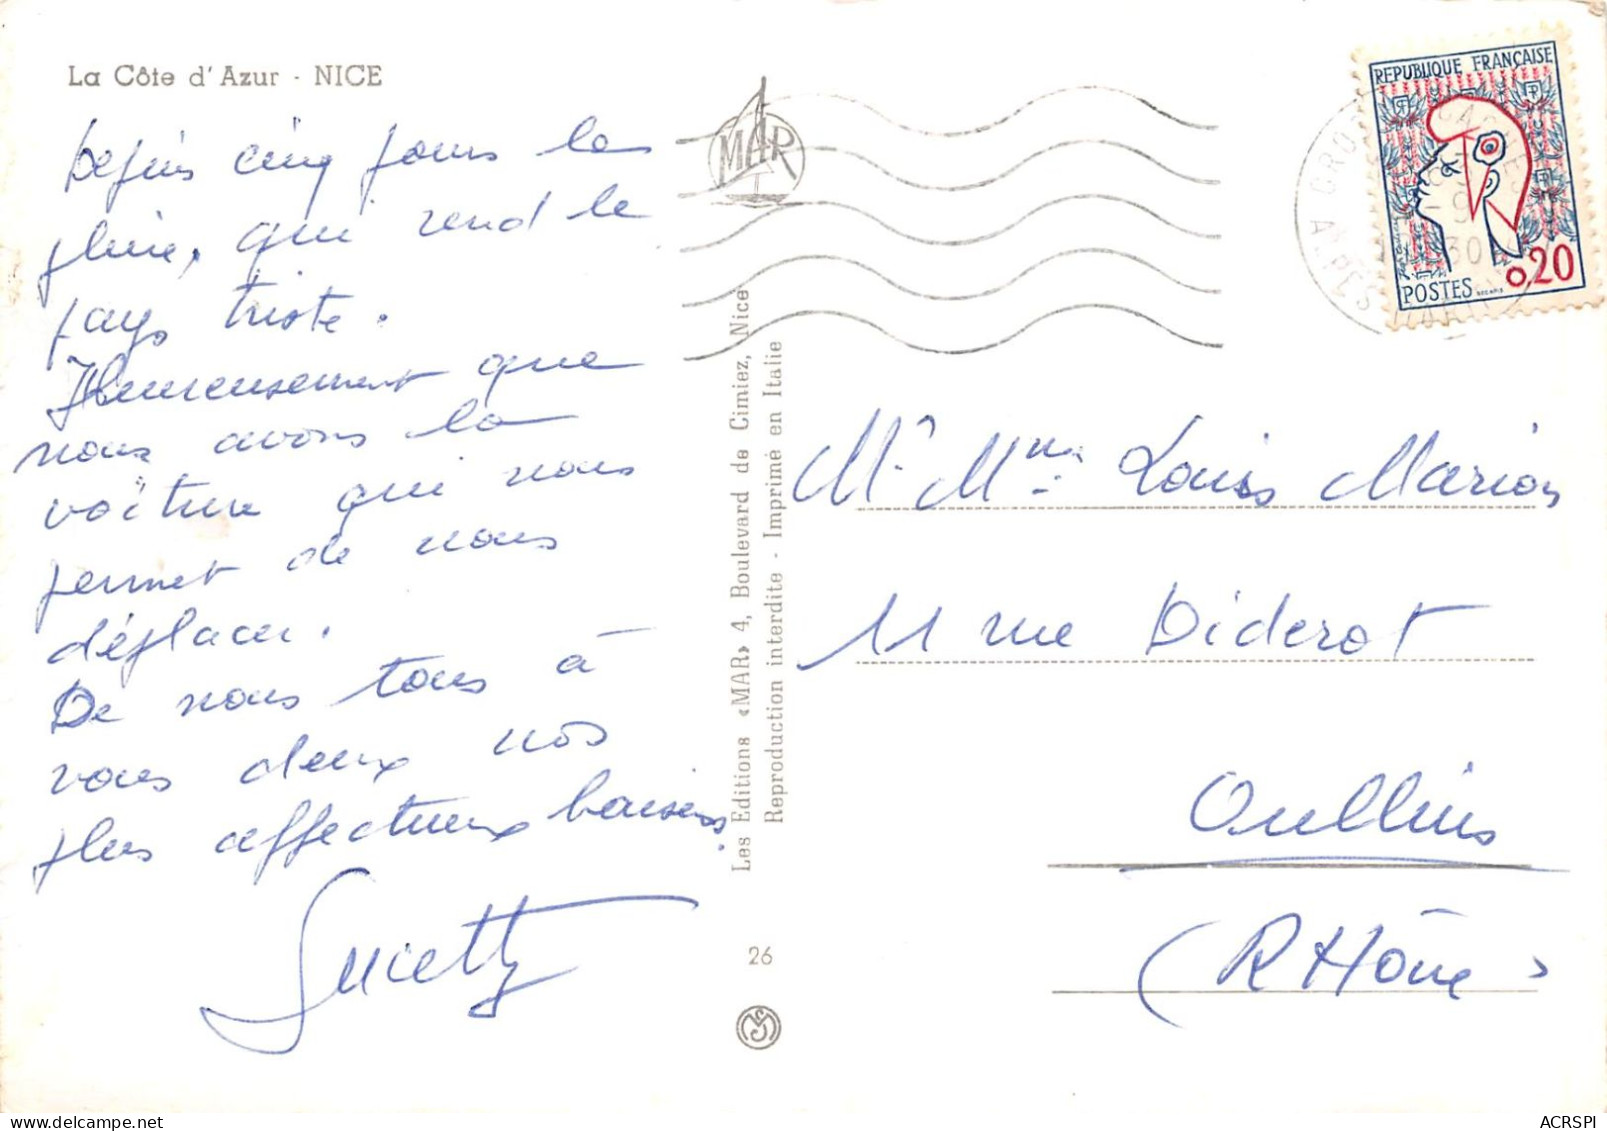 La Côte d'Azur - NICE
Depuis cinq jours la
pluie, qui rend le
pays triste.
Heureusement que
nous avons la
voiture qui nous
permet de nous
déplacer.
De nous tous à
vous deux nos
plus affectueux baisers.
Lucetty
MAR
Les Editions «MAR» 4, Boulevard de Cimiez, Nice
Reproduction interdite - Imprimé en Italie
26
REPUBLIQUE FRANÇAISE
POSTES 0,20
Mr Mme Louis Marion
11 rue Diderot
Oullins
(RHône)
ACRSPI